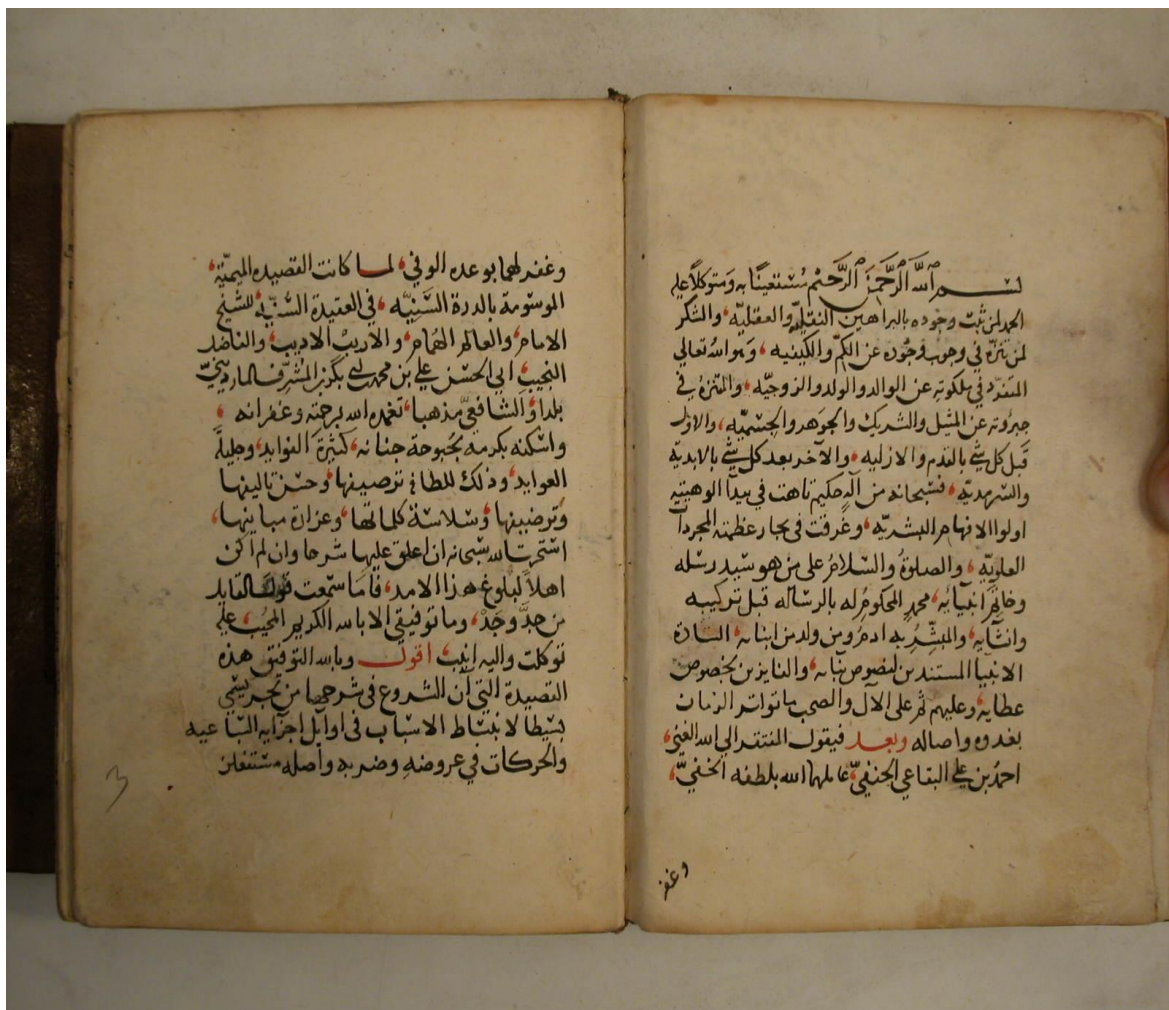 بسم الله الرحمن الرحيم مستعينا به ومتوكلا عليه
الحمد لمن ثبت وجوده بالبراهين النقليه والعقليه، والشكر
لمن تنزه في وجوب وجوده عن الكم والكيفيه، وهو الله تعالى
المتفرد في ملكوته عن الوالد والولد والزوجيه، والمتنزه في
جبروته عن المثيل والشريك والجوهر والجسميه، والاول
قبل كل شي بالقدم والازليه، والآخر بعد كل شي بالابديه
والسرمديه، فسبحانه من اله حكيم تاهت في بيدآ الوهيته
اولوا الافهام البشريه، وغرقت في بحار عظمته المجردات
العلويه، والصلوة والسلام على من هو سيد رسله
وخاتم انبيائه، محمد المحكوم له بالرسالة قبل تركيبه
وانشآيه، والمبشر به ادم ومن ولد من ابنايه، السادة
الانبيا المستندين لنصوص نبآيه، والفايزين بخصوص
عطايه، وعليهم ثم على الآل والصحب ما تواتر الزمان
بغدوه واصاله وبعد فيقول المفتقر الى الله الغني،
احمد بن علي البقاعي الحنفي، عاملهما الله بلطفه الخفي،
وغفر
وغفر لهما بوعده الوفي، لما كانت القصيده الميميه،
الموسومة بالدرة السنيه، في العقيدة السنيه، للشيخ
الامام، والعالم الهمام، والاريب الاديب، والفاضل
النجيب، ابي الحسن علي بن محمد بن ابي بكر بن المشرف المارديني
بلدا، والشافعي مذهبا، تغمده الله برحمته وغفرانه،
واسكنه بكرمه بحبوحة جنانه، كثيرة الفوايد، وجليلة
العوايد، وذلك للطافة ترصيفها، وحسن تاليفها
وترصيفها، وسلاسة كلماتها، وعزازة مبانيها،
استخرت الله سبحانه ان اعلق عليها شرحا وان لم اكن
اهلا لبلوغ هذا الامد، فاما سمعت قول القايل
من جد وجد، وما توفيقي الا بالله الكريم المجيب، عليه
توكلت واليه انيب، اقول وبالله التوفيق هذه
القصيدة التي آن الشروع في شرحها من بحر يسمى
بسيطا لانبساط الاسباب في اوايل اجزايه السباعيه
والحركات في عروضه وضربه واصله مستفعلن
3